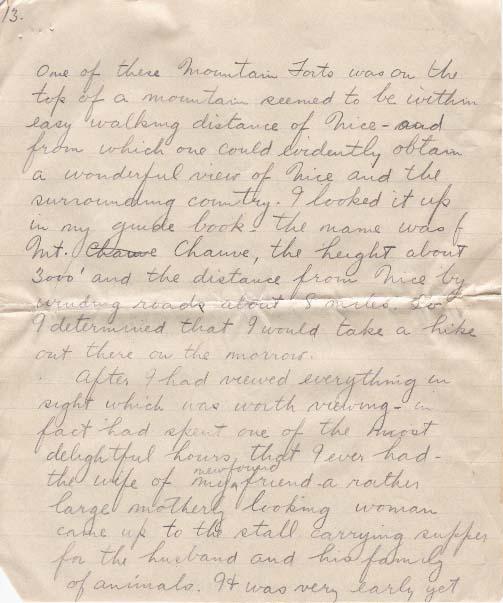 13.
One of these Mountain Forts was on the
top of a mountain seemed to be within
easy walking distance of Nice - and
from which one could evidently obtain
a wonderful view of Nice and the
surrounding country. I looked it up
in my guide book - the name was
Mt. Chauve Chauve, the height about
3000' and the distance from Nice by
winding roads about 8 miles. So
I determined that I would take a hike
out there on the morrow.
After I had viewed everything in
sight which was worth viewing - in
fact had spent one of the most
delightful hours, that I ever had -
the wife of my newfound friend - a rather
large motherly looking woman
came up to the stall carrying supper
for the husband and his family
of animals. It was very early yet